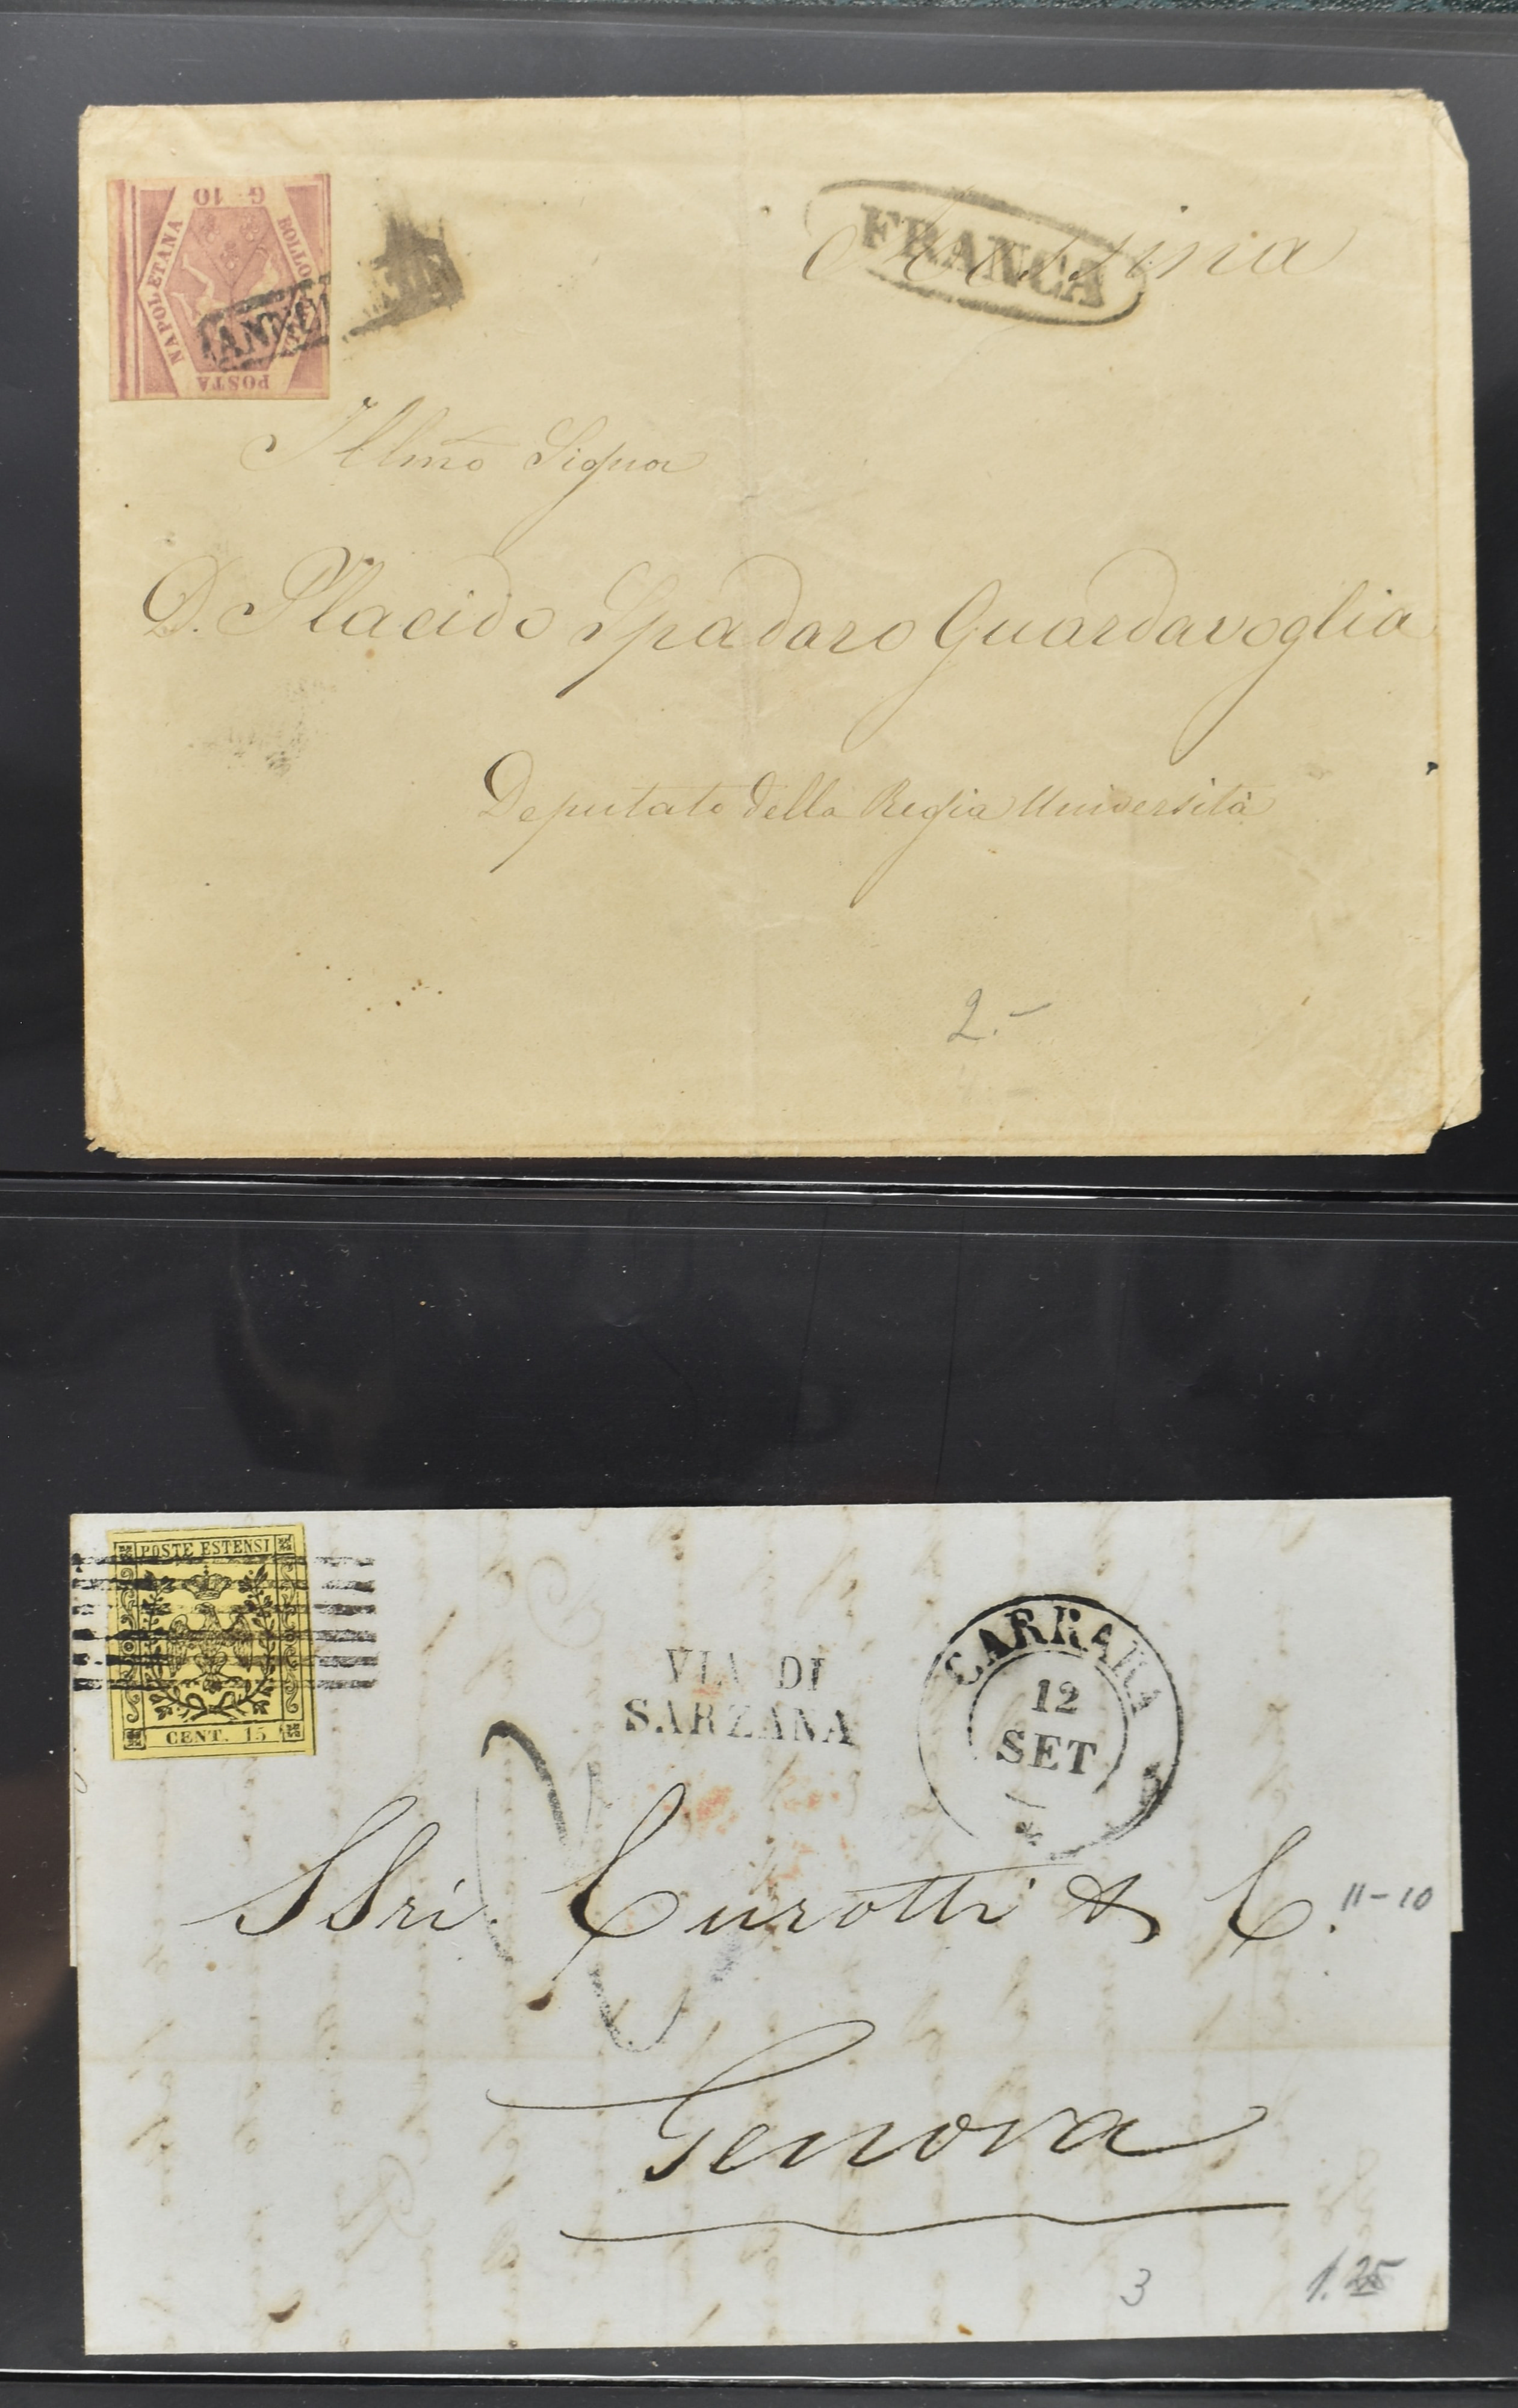 G. 10
BOLLO DELLA
POSTA
NAPOLETANA
ANN
FRANCA
Messina
Illmo Signor
D. Placido Spadaro Guardavoglia
Deputato della Regia Università
2.-
POSTE ESTENSI
CENT. 15
VIA DI
SARZANA
CARRARA
12
SET
SSri. Curotti & C.
11-10
Genova
3
1.25